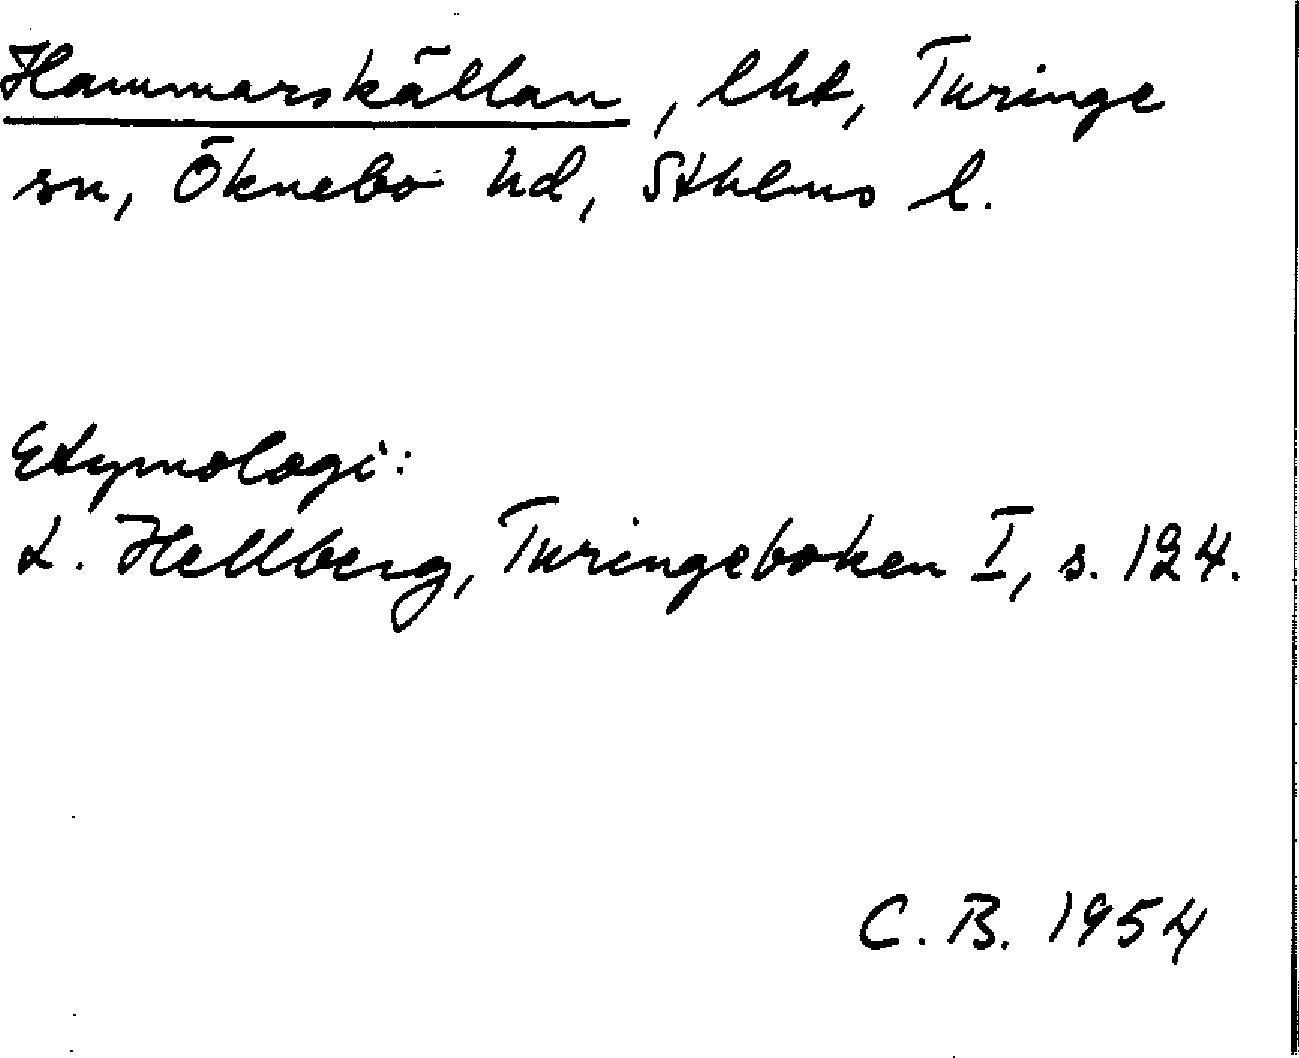 Hammarskällan, lht, Turinge
sn, Öknebo hd, Sthlms l.
Etymologi:
L. Hellberg, Turingeboken I, s. 124.
C. B. 1954